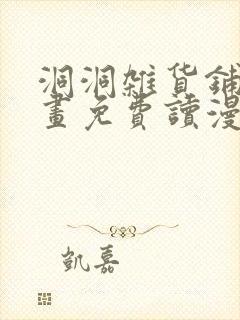 洞洞雜貨鋪
畫免費讀漫
凱嘉